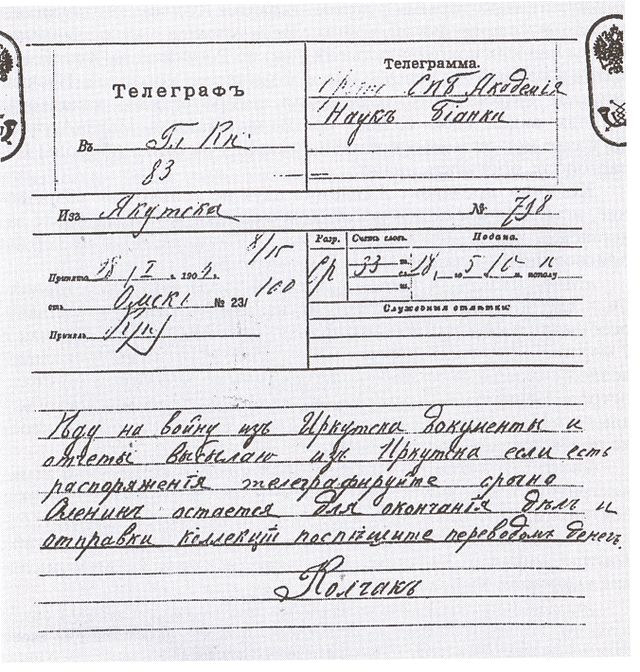 Телеграфъ
Въ Гл Кн
83
Телеграмма.
СПБ Академія
Наукъ Біанки
Изъ Якутска № 798
Принята 28 I 190
отъ Омскъ № 23/
Принялъ
8/15
100
Разр. Счетъ словъ. Подана.
Ср 33 28 5 полу
Служебныя отмѣтки:
Иду на войну изъ Иркутска документы и
отчеты высылаю изъ Иркутска если есть
распоряженія телеграфируйте срочно
Оленинъ остается для окончанія дѣлъ и
отправки коллекцій поспѣшите переводомъ денегъ.
Колчакъ